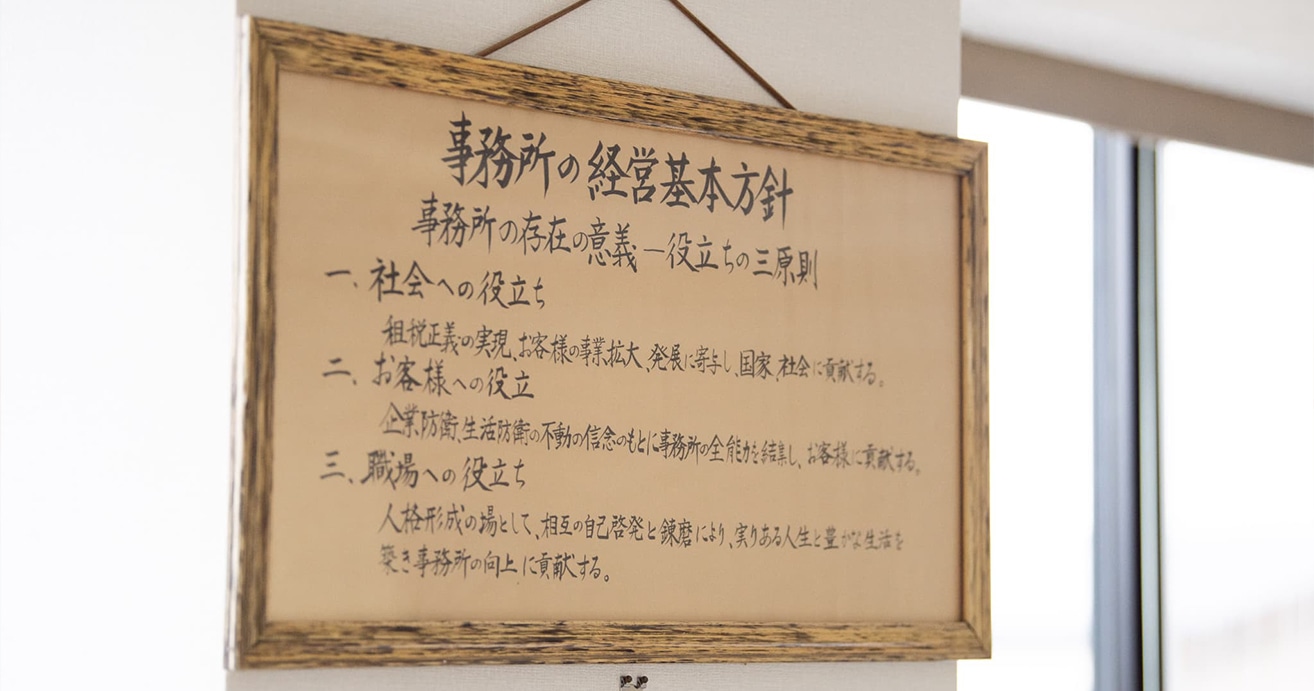 事務所の経営基本方針
事務所の存在の意義―役立ちの三原則
一、社会への役立ち
租税正義の実現、お客様の事業拡大、発展に寄与し、国家、社会に貢献する。
二、お客様への役立
企業防衛、生活防衛の不動の信念のもとに事務所の全能力を結集し、お客様に貢献する。
三、職場への役立ち
人格形成の場として、相互の自己啓発と錬磨により、実りある人生と豊かな生活を
築き事務所の向上に貢献する。